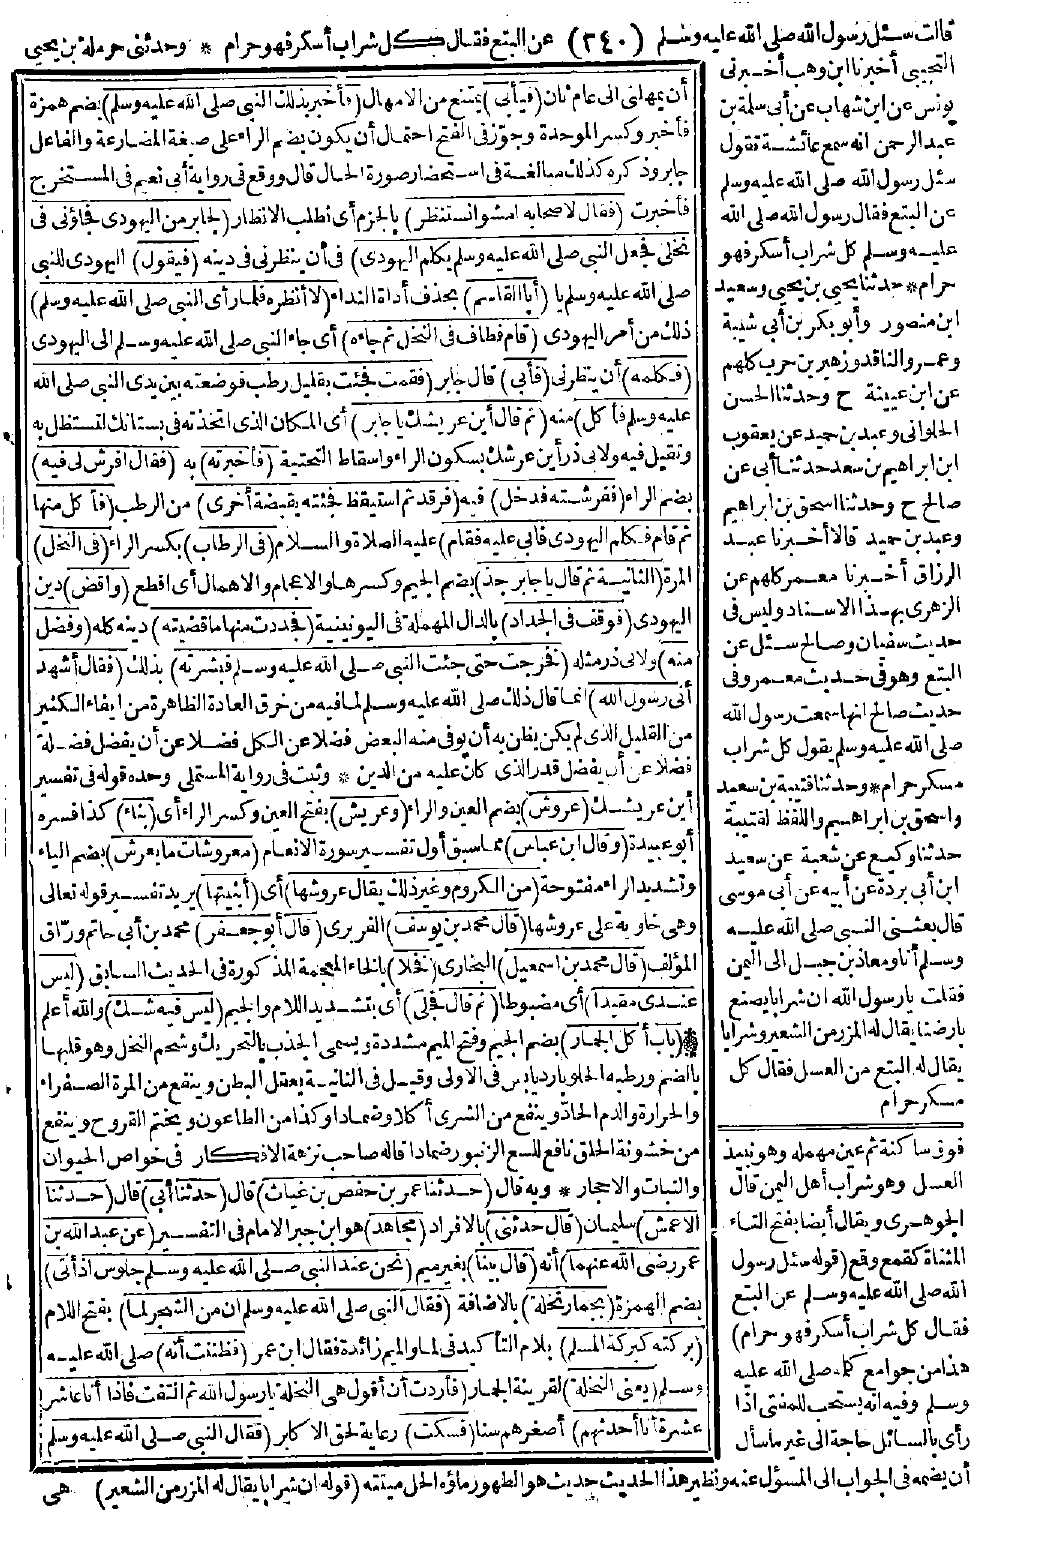 قالت سئل رسول الله صلى الله عليه وسلم (٣٤٠) عن البتع فقال كل شراب أسكر فهو حرام * وحدثني حرملة بن يحيي
التجيبي أخبرنا ابن وهب أخبرني
يونس عن ابن شهاب عن أبي سلمة بن
عبد الرحمن انه سمع عائشة تقول
سئل رسول الله صلى الله عليه وسلم
عن البتع فقال رسول الله صلى الله
عليه وسلم كل شراب أسكر فهو
حرام * حدثنا يحيي بن يحيي وسعيد
ابن منصور وأبو بكر بن أبي شيبة
وعمرو الناقد وزهير بن حرب كلهم
عن ابن عيينة ح وحدثنا الحسن
الحلواني وعبد بن حميد عن يعقوب
ابن ابراهيم بن سعد حدثنا أبي عن
صالح ح وحدثنا اسحق بن ابراهيم
وعبد بن حميد قالا أخبرنا عبد
الرزاق أخبرنا معمر كلهم عن
الزهري بهذا الاسناد وليس في
حديث سفيان وصالح سئل عن
البتع وهو في حديث معمر وفي
حديث صالح انها سمعت رسول الله
صلى الله عليه وسلم يقول كل شراب
مسكر حرام * وحدثنا قتيبة بن سعيد
واسحق بن ابراهيم واللفظ لقتيبة
حدثنا وكيع عن شعبة عن سعيد
ابن أبي بردة عن أبيه عن أبي موسى
قال بعثني النبي صلى الله عليه
وسلم أنا ومعاذ بن جبل الى اليمن
فقلت يا رسول الله ان شرابا يصنع
بارضنا يقال له المزر من الشعير وشرابا
يقال له البتع من العسل فقال كل
مسكر حرام
أن يمهلني الى عام ثان (فيأبى) يمتنع من الامهال (فأخبر بذلك النبي صلى الله عليه وسلم) بضم همزة
فأخبر وكسر الموحدة وجوّز في الفتح احتمال أن يكون بضم الراء على صيغة المضارعة والفاعل
جابر وذكره كذلك مبالغة في استحضار صورة الحال قال ووقع في رواية أبي نعيم في المستخرج
فأخبرت (فقال لاصحابه امشوا نستنظر) بالجزم أي نطلب الانظار (لجابر من اليهودي فجاؤني في
نخلي فجعل النبي صلى الله عليه وسلم يكلم اليهودي) في أن ينظرني في دينه (فيقول) اليهودي للنبي
صلى الله عليه وسلم يا (أبا القاسم) بحذف أداة النداء (لا أنظره فلما رأى النبي صلى الله عليه وسلم)
ذلك من أمر اليهودي (قام فطاف في النخل ثم جاءه) أي جاء النبي صلى الله عليه وسلم الى اليهودي
(فكلمه) أن ينظرني (فأبى) قال جابر (فقمت فجئت بقليل رطب فوضعته بين يدي النبي صلى الله
عليه وسلم فأكل) منه (ثم قال أين عريشك يا جابر) أي المكان الذي اتخذته في بستانك لتستظل به
وتقيل فيه ولابي ذر أين عرشك بسكون الراء واسقاط التحتية (فأخبرته) به (فقال افرش لي فيه)
بضم الراء (ففرشته فدخل) فيه (فرقد ثم استيقظ فجئته بقبضة أخرى) من الرطب (فأكل منها
ثم قام فكلم اليهودي فأبى عليه فقام) عليه الصلاة والسلام (في الرطاب) بكسر الراء (في النخل)
المرة (الثانية ثم قال يا جابر جذ) بضم الجيم وكسرها والاعجام والاهمال أي اقطع (واقض) دين
اليهودي (فوقف في الجداد) بالدال المهملة في اليونينية (فجددت منها ما قضيته) دينه كله (وفضل
منه) ولابي ذر مثله (فخرجت حتى جئت النبي صلى الله عليه وسلم فبشرته) بذلك (فقال أشهد
أني رسول الله) انما قال ذلك صلى الله عليه وسلم لما فيه من خرق العادة الظاهرة من ايفاء الكثير
من القليل الذي لم يكن يظن به أن يوفى منه البعض فضلا عن الكل فضلا عن أن يفضل فضلة
فضلا عن أن يفضل قدر الذي كان عليه من الدين * وثبت في رواية المستملي وحده قوله في تفسير
أين عريشك (عروش) بضم العين والراء (وعريش) بفتح العين وكسر الراء أي (بناء) كذا فسره
أبو عبيدة (وقال ابن عباس) مما سبق أول تفسير سورة الانعام (معروشات ما يعرش) بضم الياء
وتشديد الراء مفتوحة (من الكروم وغير ذلك يقال عروشها) أي (أبنيتها) يريد تفسير قوله تعالى
وهي خاوية على عروشها (قال محمد بن يوسف) الفربري (قال أبو جعفر) محمد بن أبي حاتم ورّاق
المؤلف (قال محمد بن اسمعيل) البخاري (نخلا) بالخاء المعجمة المذكورة في الحديث السابق (ليس
عندي مقيدا) أي مضبوطا (ثم قال فجلى) أي بتشديد اللام والجيم (ليس فيه شك) والله أعلم
* (باب أكل الجمار) بضم الجيم وفتح الميم مشددة ويسمى الجذب بالتحريك وشحم النخل وهو قلبها
بالضم ورطبه الحلو بارد يابس في الاولى وقيل في الثانية يعقل البطن وينفع من المرة الصفراء
والحرارة والدم الحادّ وينفع من الشرى أكلا وضمادا وكذا من الطاعون ويختم القروح وينفع
من خشونة الحلق نافع للسع الزنبور ضمادا قاله صاحب نزهة الافكار في خواص الحيوان
والنبات والاحجار * وبه قال (حدثنا عمر بن حفص بن غياث) قال (حدثنا أبي) قال (حدثنا
الاعمش) سليمان (قال حدثني) بالافراد (مجاهد) هو ابن جبر الامام في التفسير (عن عبد الله بن
عمر رضي الله عنهما) أنه (قال بينا) بغير ميم (نحن عند النبي صلى الله عليه وسلم جلوس اذ أتي)
بضم الهمزة (بجمار نخلة) بالاضافة (فقال النبي صلى الله عليه وسلم ان من الشجر لما) بفتح اللام
(بركته كبركة المسلم) بلام التأكيد في لما والميم زائدة فقال ابن عمر (فظننت أنه) صلى الله عليه
وسلم (يعني النخلة) لقرينة الجمار (فأردت أن أقول هي النخلة يا رسول الله ثم التفت فاذا أنا عاشر
عشرة أنا أحدثهم) أصغرهم سنا (فسكت) رعاية لحق الاكابر (فقال النبي صلى الله عليه وسلم
فوق ساكنة ثم عين مهملة وهو نبيذ
العسل وهو شراب أهل اليمن قال
الجوهري ويقال أيضا بفتح التاء
المثناة كقمع وقع (قوله سئل رسول
الله صلى الله عليه وسلم عن البتع
فقال كل شراب أسكر فهو حرام)
هذا من جوامع كلمه صلى الله عليه
وسلم وفيه انه يستحب للمفتي اذا
رأى بالسائل حاجة الى غير ما سأل
أن يضمه في الجواب الى المسؤل عنه ونظير هذا الحديث حديث هو الطهور ماؤه الحل ميتته (قوله ان شرابا يقال له المزر من الشعير) هي